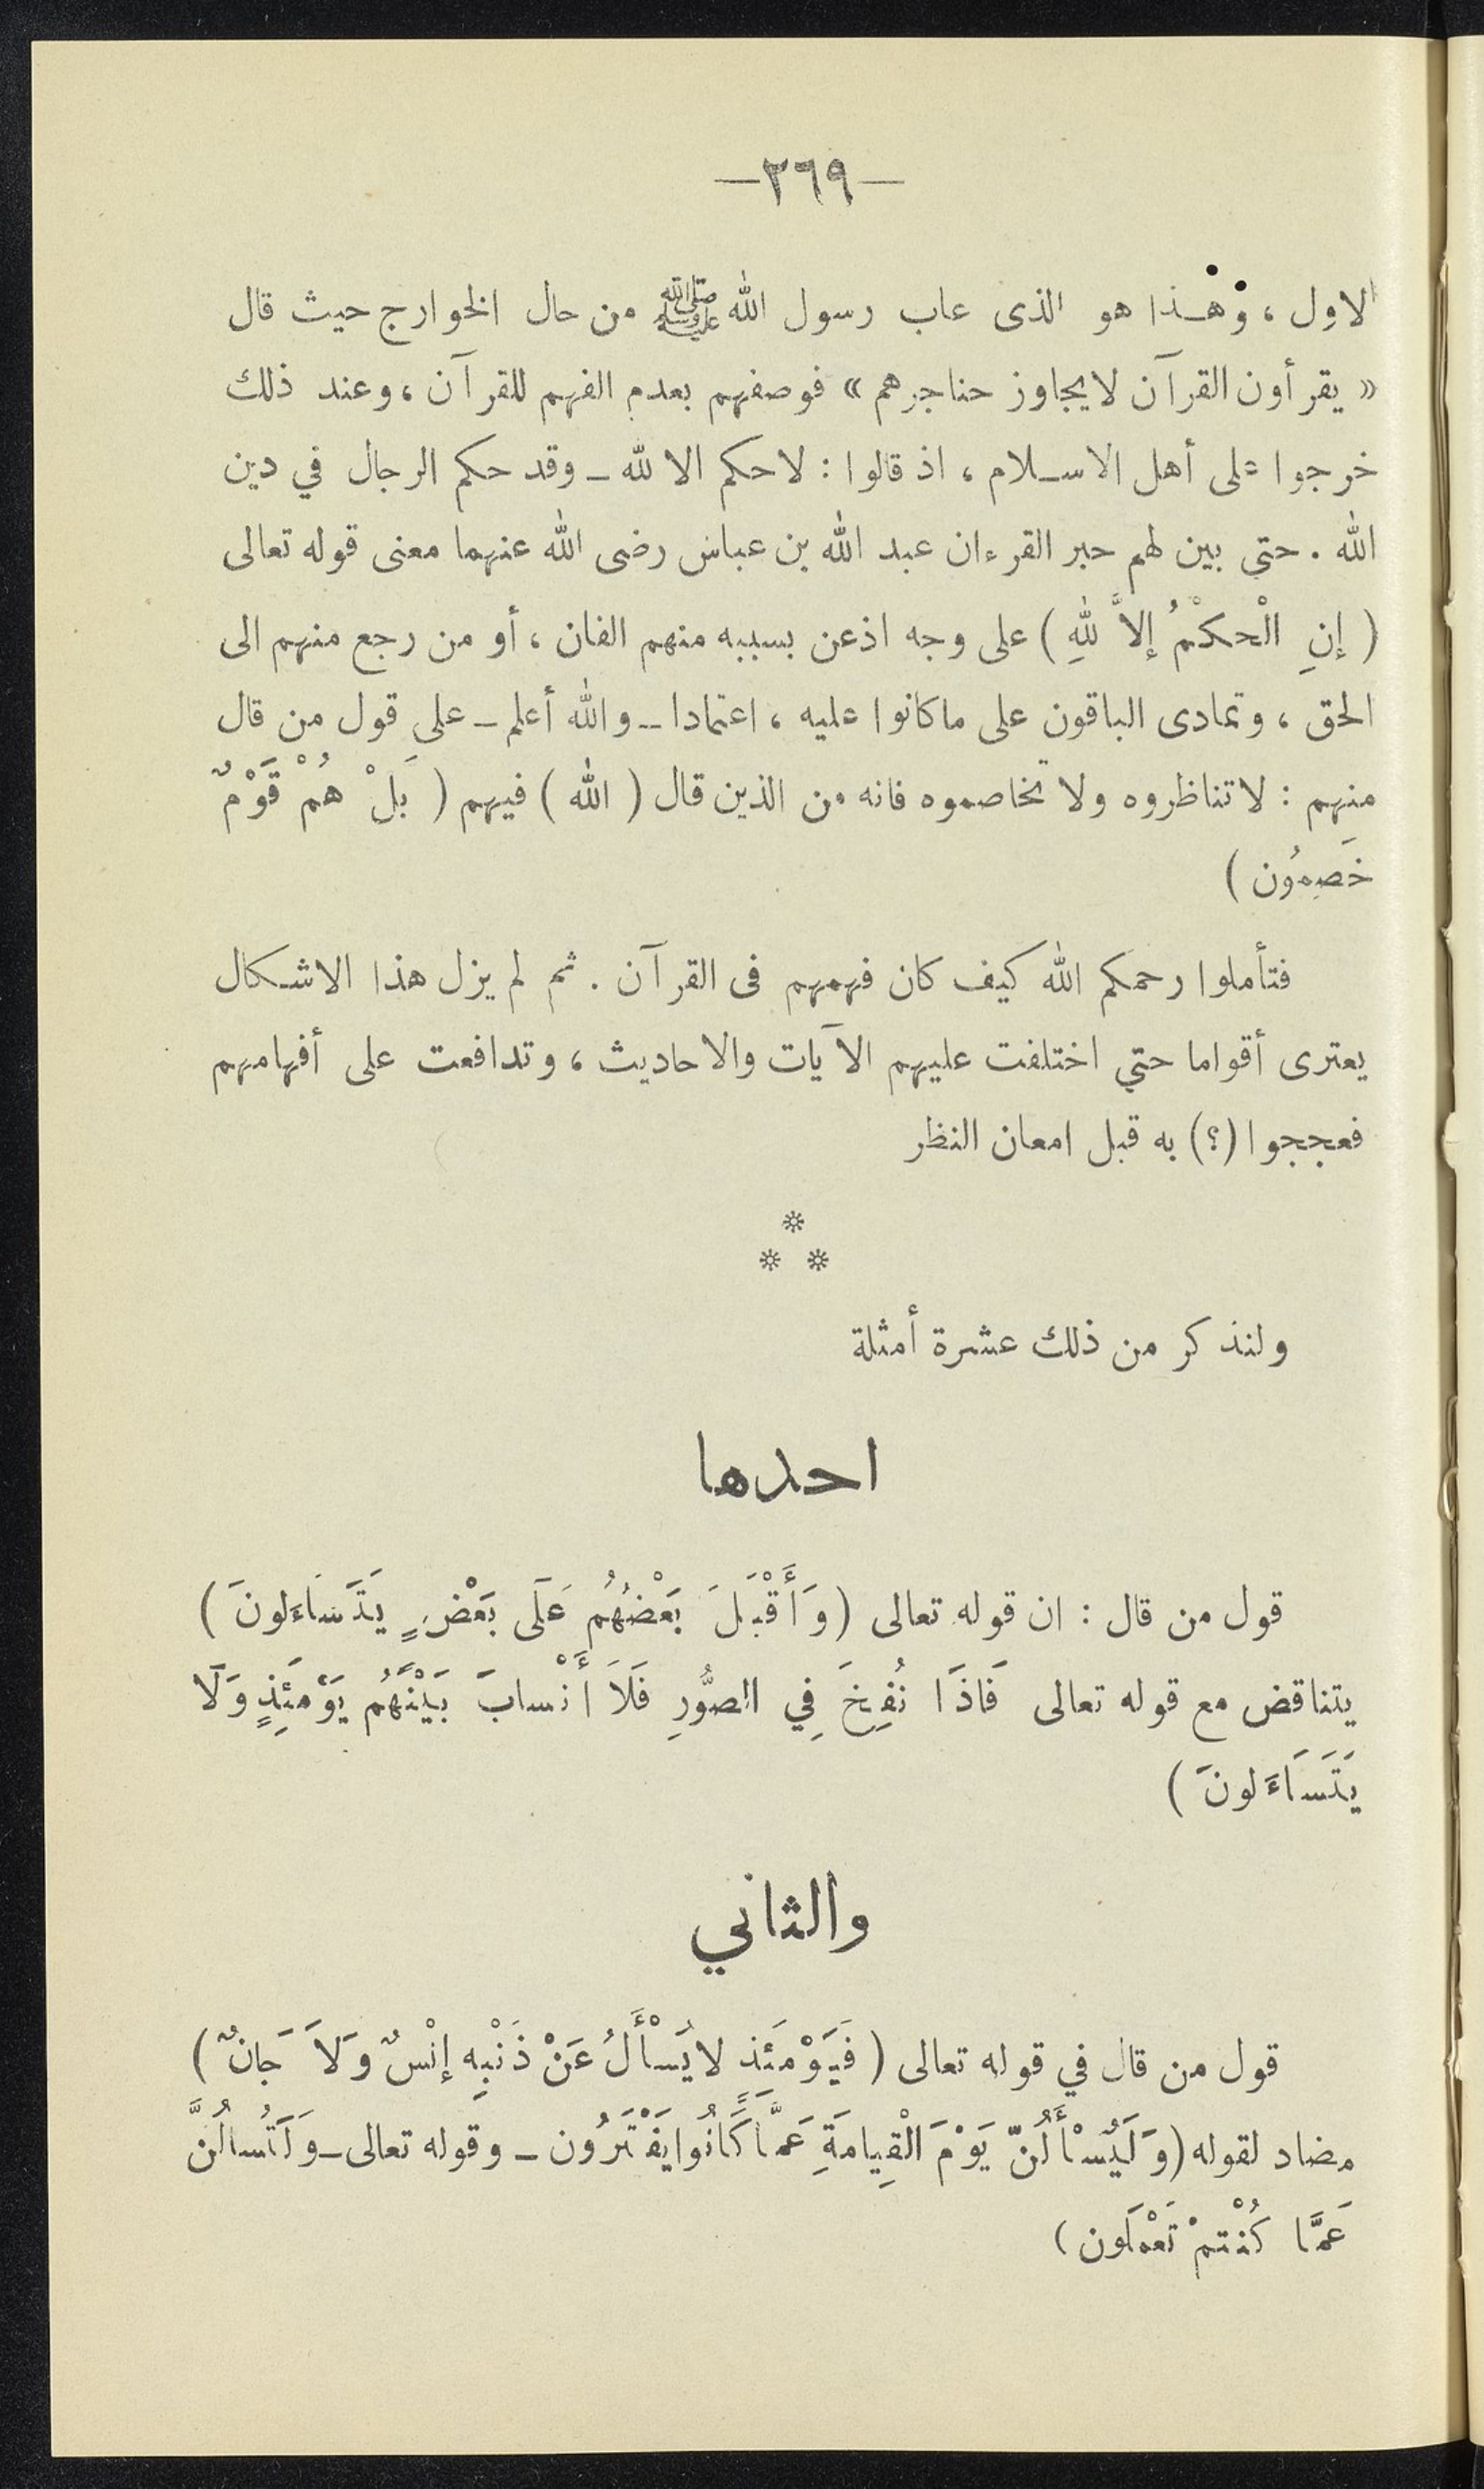 —٢٦٩—
الاول ، وهـذا هو الذى عاب رسول الله ﷺ من حال الخوارج حيث قال
« يقرأون القرآن لايجاوز حناجرهم » فوصفهم بعدم الفهم للقرآن ، وعند ذلك
خرجوا على أهل الاسـلام ، اذ قالوا : لاحكم الا لله ـ وقد حكم الرجال في دين
الله . حتى بين لهم حبر القرءان عبد الله بن عباس رضى الله عنهما معنى قوله تعالى
( إنِ الْحكْمُ إلاَّ للهِ ) على وجه اذعن بسببه منهم الفان ، أو من رجع منهم الى
الحق ، وتمادى الباقون على ماكانوا عليه ، اعتمادا ــ والله أعلم ـ على قول من قال
منهم : لاتناظروه ولا تخاصموه فانه من الذين قال ( الله ) فيهم ( بَلْ هُمْ قَوْمٌ
خَصِمُون )
فتأملوا رحمكم الله كيف كان فهمهم فى القرآن . ثم لم يزل هذا الاشـكال
يعترى أقواما حتي اختلفت عليهم الآيات والاحاديث ، وتدافعت على أفهامهم
فعججوا (؟) به قبل امعان النظر
*
* *
ولنذكر من ذلك عشرة أمثلة
احدها
قول من قال : ان قوله تعالى ( وَأَقْبَلَ بَعْضُهُم عَلَى بَعْضٍ يَتَسَاءَلونَ )
يتناقض مع قوله تعالى فَاذَا نُفِخَ فِي الصُّورِ فَلاَ أَنْسابَ بَيْنَهُم يَوْمَئِذٍ وَلَا
يَتَسَاءَلونَ )
والثاني
قول من قال في قوله تعالى ( فَيَوْمَئَذٍ لايَسْأَلُ عَنْ ذَنْبِهِ إنْسٌ وَلاَ جَانٌ )
مضاد لقوله ( وَلَيُسْأَلُنّ يَوْمَ الْقِيامَةِ عَمَّا كَانُوا يَفْتَرُون ـ وقوله تعالى ـ وَلَتُسالُنَّ
عَمَّا كُنْتمْ تَعْملَون )